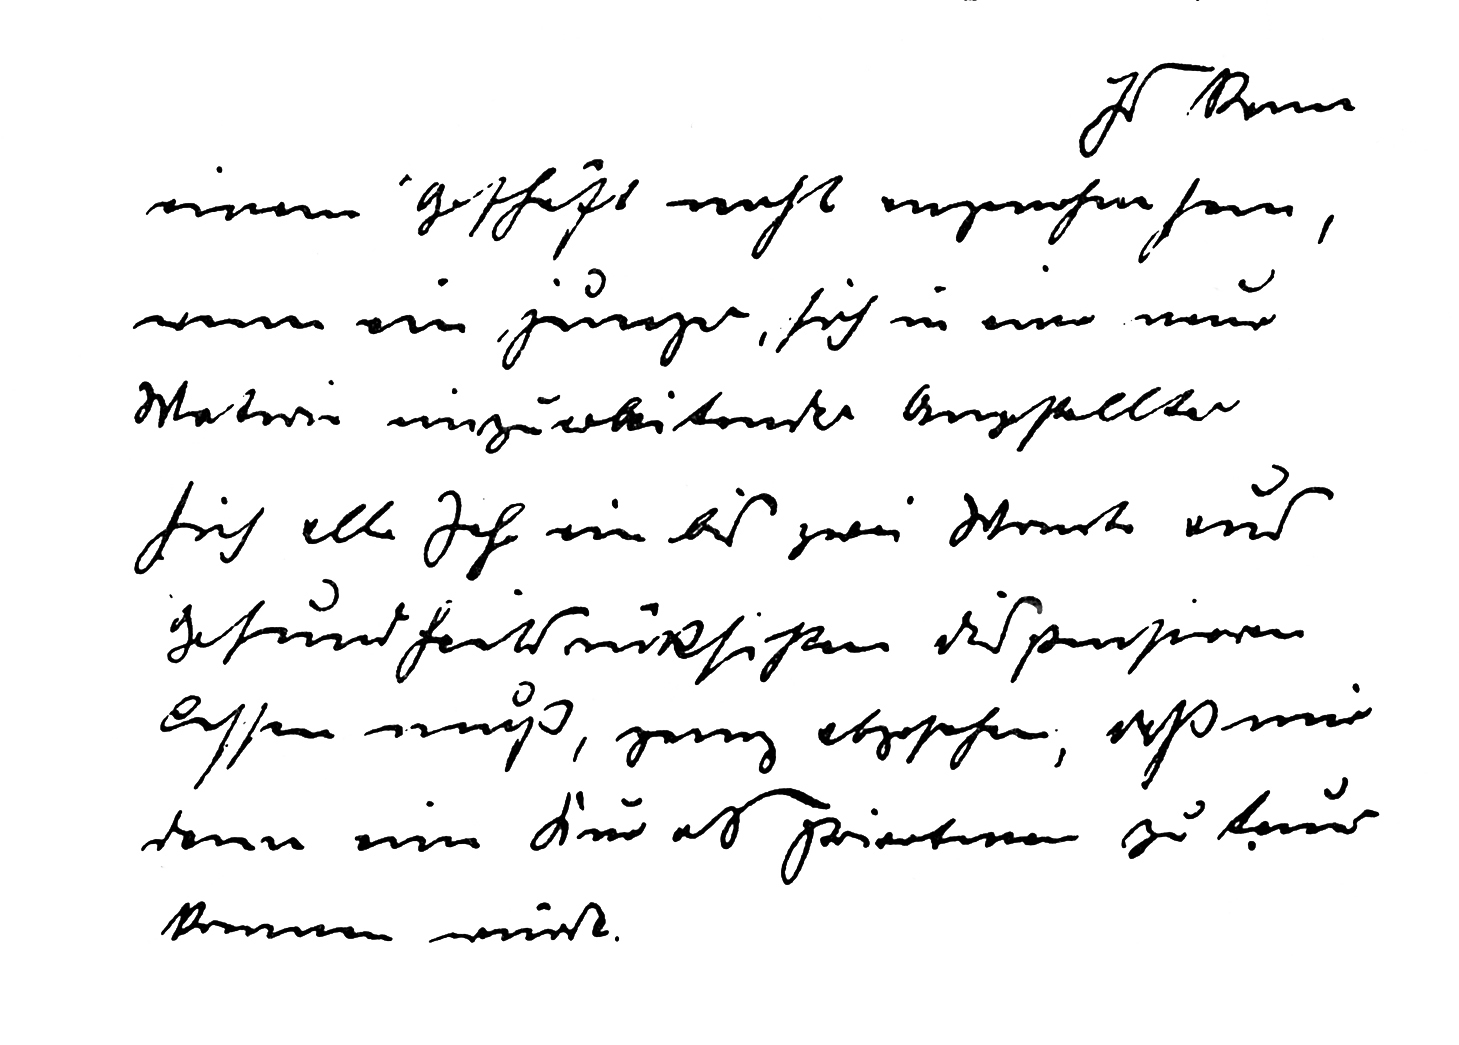 Es kann
einem Geschäft nicht angenehm sein,
wenn ein junger, sich in eine neue
Materie einzuarbeitender Angestellter
sich alle Jahr ein bis zwei Monate aus
Gesundheitsrücksichten dispensieren
lassen muß, ganz abgesehen, daß mir
denn eine Kur als Privatmann zu teuer
kommen würde.